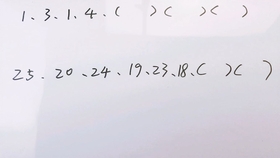 1、3、1、4、(    )(    )(    )
25、20、24、19、23、18、(    )(    )